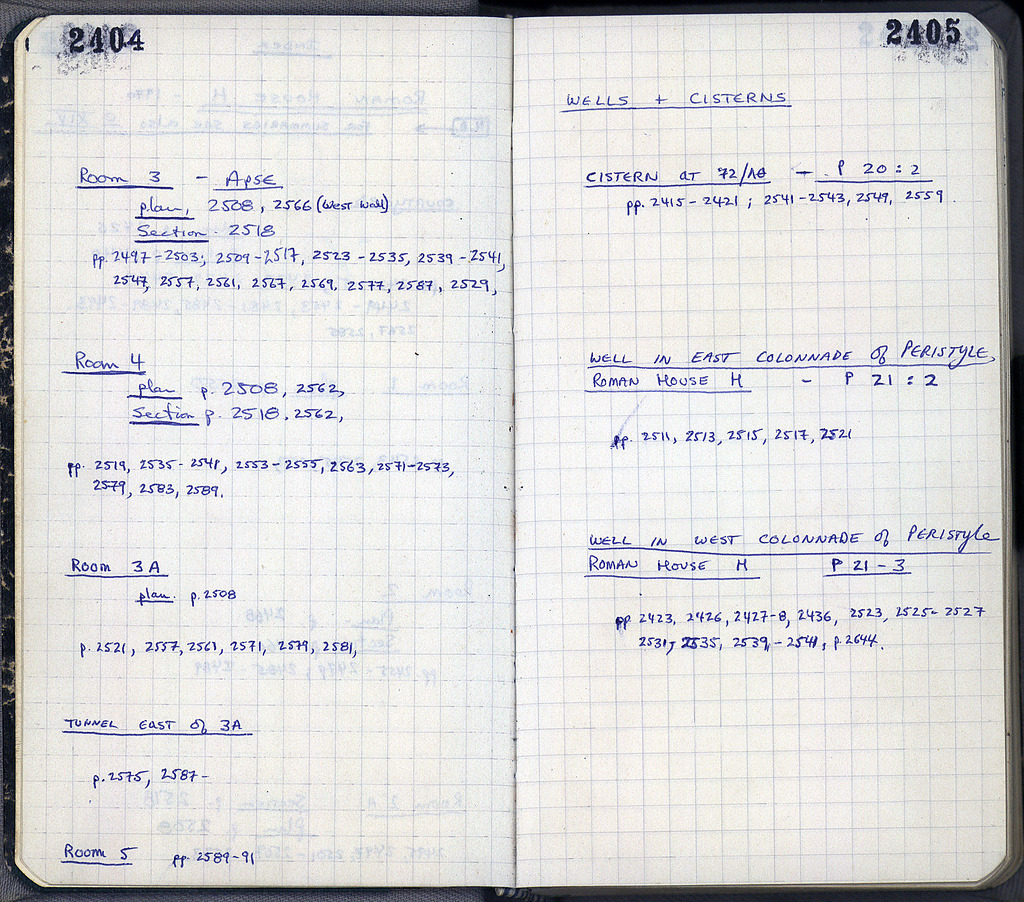 2404
Room 3 - Apse
plan, 2508, 2566 (West Wall)
Section. 2518
pp. 2497-2503; 2509-2517, 2523-2535, 2539-2541,
2547, 2557, 2561, 2567, 2569, 2577, 2587, 2529,
Room 4
plan p. 2508, 2562,
Section p. 2518, 2562,
pp. 2519, 2535-2541, 2553-2555, 2563, 2571-2573,
2579, 2583, 2589.
Room 3A
plan. p. 2508
p. 2521, 2557, 2561, 2571, 2579, 2581,
TUNNEL EAST of 3A
p. 2575, 2587-
Room 5 pp. 2589-91
2405
WELLS + CISTERNS
CISTERN AT - P 20:2
pp. 2415-2421; 2541-2543, 2549, 2559.
WELL IN EAST COLONNADE of PERISTYLE,
ROMAN HOUSE H - P 21:2
pp. 2511, 2513, 2515, 2517, 2521
WELL IN WEST COLONNADE of PERISTYLE
ROMAN HOUSE H P 21-3
pp 2423, 2426, 2427-8, 2436, 2523, 2525-2527
2531, 2535, 2539-2541, p. 2644.